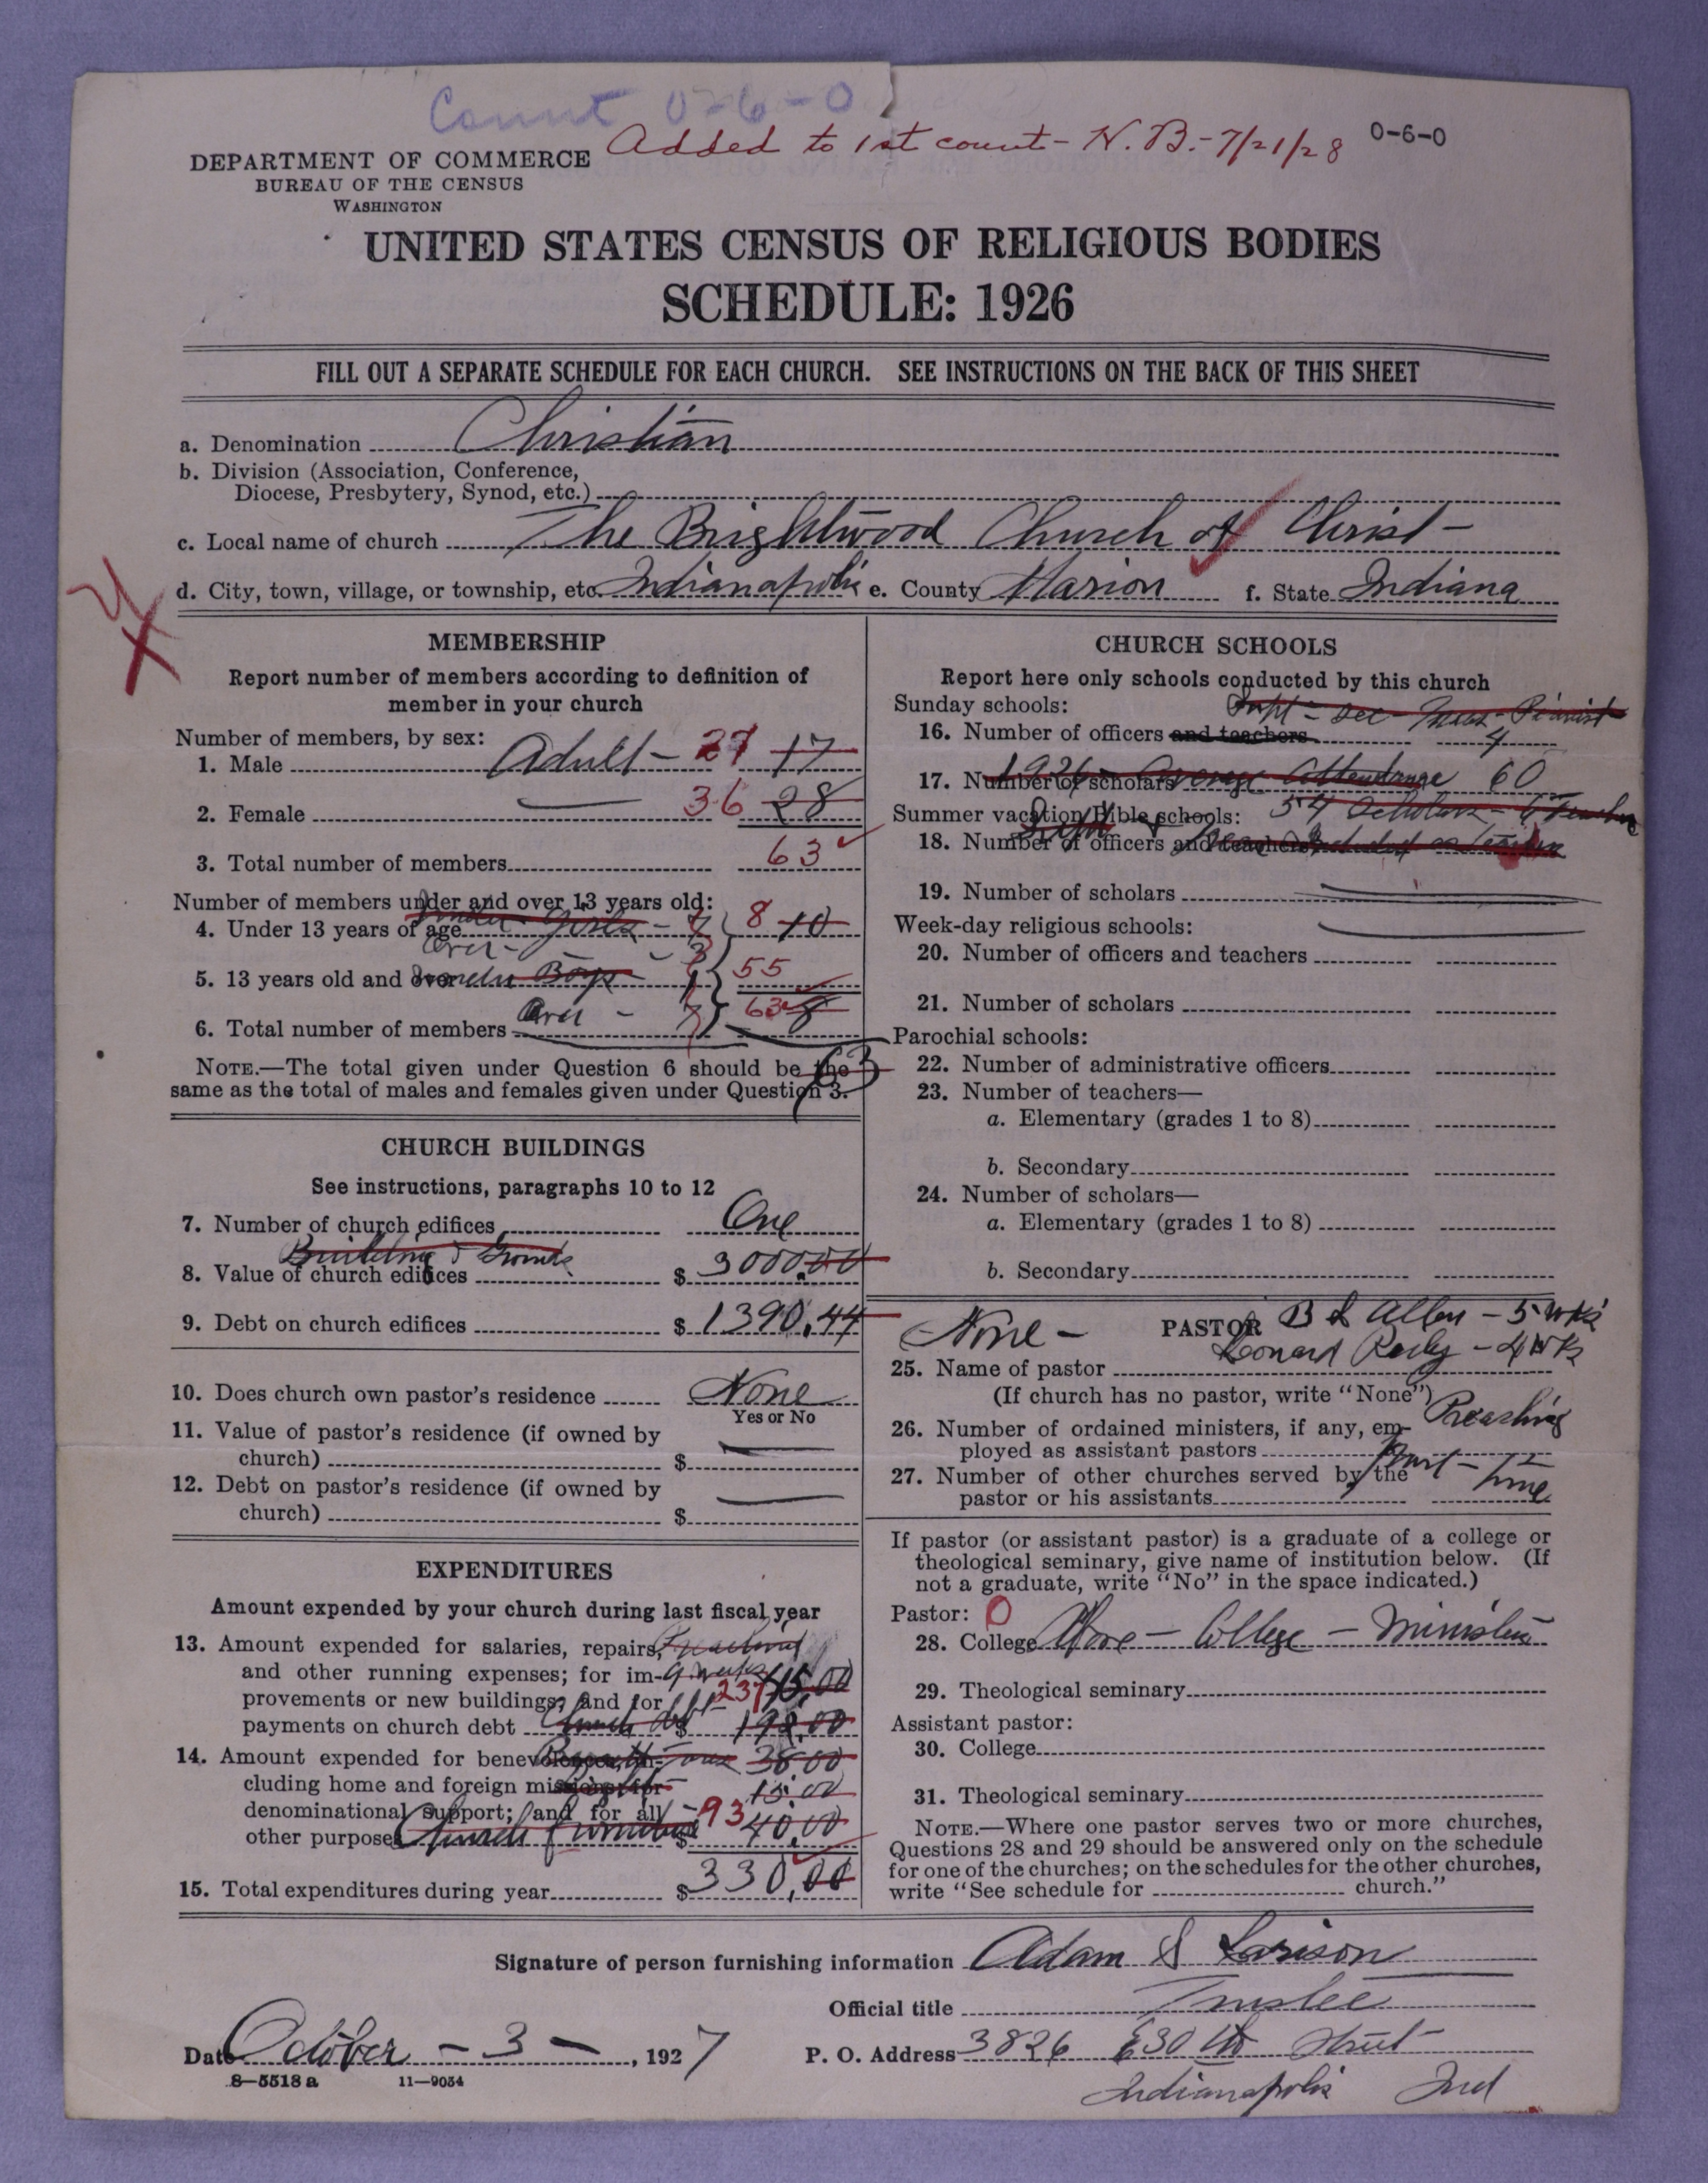 Count 0-6-0
Added to 1st count - N. B. - 7/21/28 0-6-0
DEPARTMENT OF COMMERCE
BUREAU OF THE CENSUS
WASHINGTON
UNITED STATES CENSUS OF RELIGIOUS BODIES
SCHEDULE: 1926
FILL OUT A SEPARATE SCHEDULE FOR EACH CHURCH. SEE INSTRUCTIONS ON THE BACK OF THIS SHEET
a. Denomination Christian
b. Division (Association, Conference,
Diocese, Presbytery, Synod, etc.)
c. Local name of church The Brightwood Church of Christ
d. City, town, village, or township, etc. Indianapolis e. County Marion f. State Indiana
MEMBERSHIP
Report number of members according to definition of
member in your church
Number of members, by sex:
1. Male Adult - 27 17
2. Female 36 28
3. Total number of members 63
Number of members under and over 13 years old:
Under Girls - 7
4. Under 13 years of age 8 10
Over - 3
5. 13 years old and over Under Boys - 1 55
6. Total number of members Over - 7 63 8
63
NOTE.—The total given under Question 6 should be the
same as the total of males and females given under Question 3.
CHURCH BUILDINGS
See instructions, paragraphs 10 to 12
7. Number of church edifices One
Building & Grounds
8. Value of church edifices $ 3000.00
9. Debt on church edifices $ 1390.44
10. Does church own pastor's residence None
Yes or No
11. Value of pastor's residence (if owned by
church) $
12. Debt on pastor's residence (if owned by
church) $
EXPENDITURES
Amount expended by your church during last fiscal year
13. Amount expended for salaries, repairs, Preaching
and other running expenses; for im- 9 weeks
provements or new buildings; and for 237
payments on church debt Church debt $ 192.00
14. Amount expended for benevolences, in- 38.00
cluding home and foreign missions; for 15.00
denominational support; and for all 93
other purposes Church Furniture $ 40.00
15. Total expenditures during year $ 330.00
CHURCH SCHOOLS
Report here only schools conducted by this church
Sunday schools: Supt - Sec - Treas - Pianist
16. Number of officers and teachers 4
17. Number of scholars 1926 - Average Attendance 60
Summer vacation Bible schools: 54 Scholars - 6 Teachers
18. Number of officers and teachers
19. Number of scholars
Week-day religious schools:
20. Number of officers and teachers
21. Number of scholars
Parochial schools:
22. Number of administrative officers
23. Number of teachers—
a. Elementary (grades 1 to 8)
b. Secondary
24. Number of scholars—
a. Elementary (grades 1 to 8)
b. Secondary
None - PASTOR B L Allen - 5 wks
Leonard - 4 wks
25. Name of pastor
(If church has no pastor, write "None")
26. Number of ordained ministers, if any, em- Preaching
ployed as assistant pastors
27. Number of other churches served by the Part - Time
pastor or his assistants
If pastor (or assistant pastor) is a graduate of a college or
theological seminary, give name of institution below. (If
not a graduate, write "No" in the space indicated.)
Pastor: 0
28. College - College - Ministers
29. Theological seminary
Assistant pastor:
30. College
31. Theological seminary
NOTE.—Where one pastor serves two or more churches,
Questions 28 and 29 should be answered only on the schedule
for one of the churches; on the schedules for the other churches,
write "See schedule for church."
Signature of person furnishing information Adam S Larison
Official title Trustee
Date October - 3 -, 1927 P. O. Address 3826 E 30th Street
8—5518 a 11—9054
Indianapolis Ind